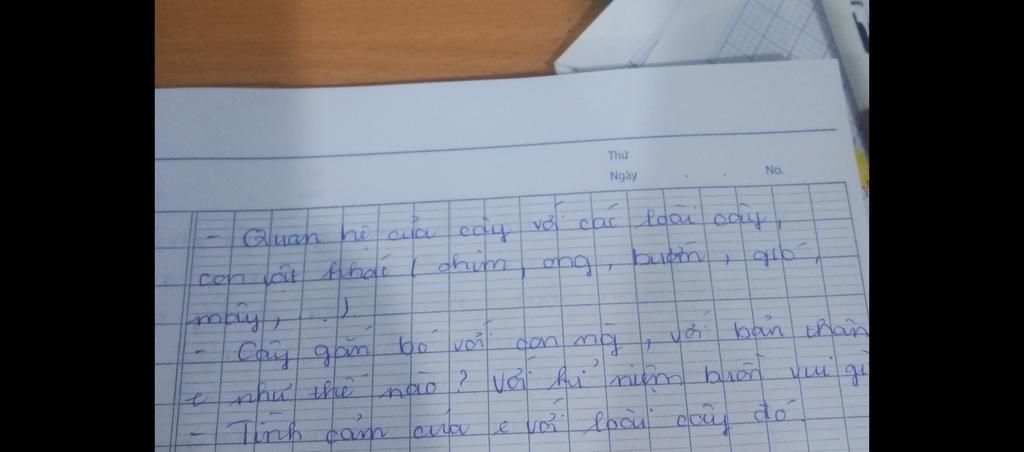 Thứ
Ngày . . No.
- Quan hệ của cây với các loài cây,
con vật khác ( chim, ong, bướm, gió,
mây, ...)
- Cây gắn bó với con ng, với bản thân
e như thế nào? Với kỉ niệm buồn vui gì
- Tình cảm của e với loài cây đó